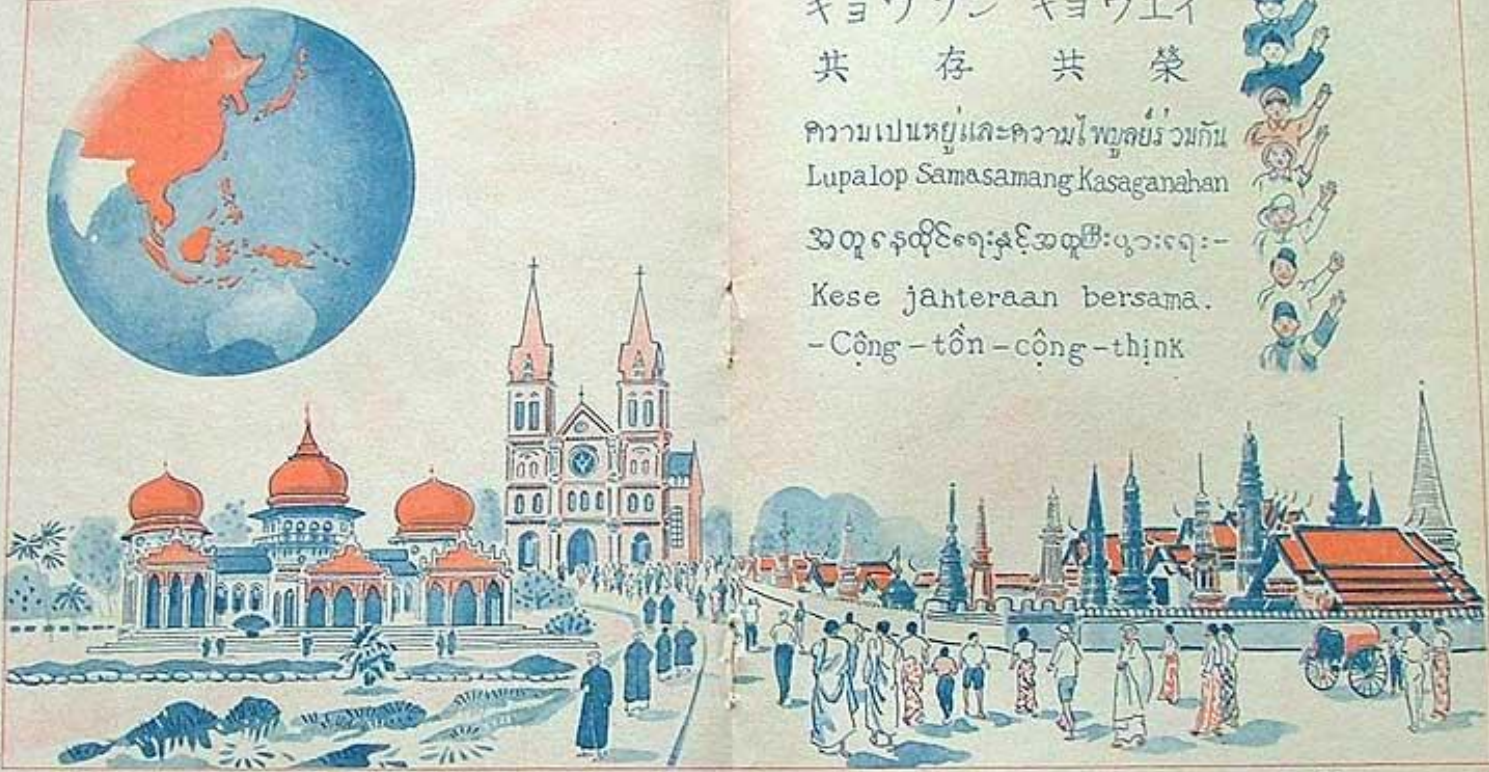 キョウゾン キョウエイ
共 存 共 榮
ความเปนหยู่และความไพบูลย์ร่วมกัน
Lupalop Samasamang Kasaganahan
အတူနေထိုင်ရေးနှင့်အတူကြီးပွားရေး-
Kese jahteraan bersama.
-Cộng-tồn-cộng-thịnk